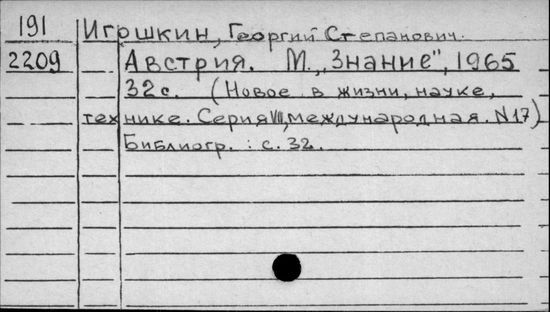 191 Игошкин, Георгий Степанович.
2209 Австрия. М., "Знание", 1965
32с. (Новое в жизни, науке,
технике. Серия VII, международная. N17)
Библиогр.: с. 32.